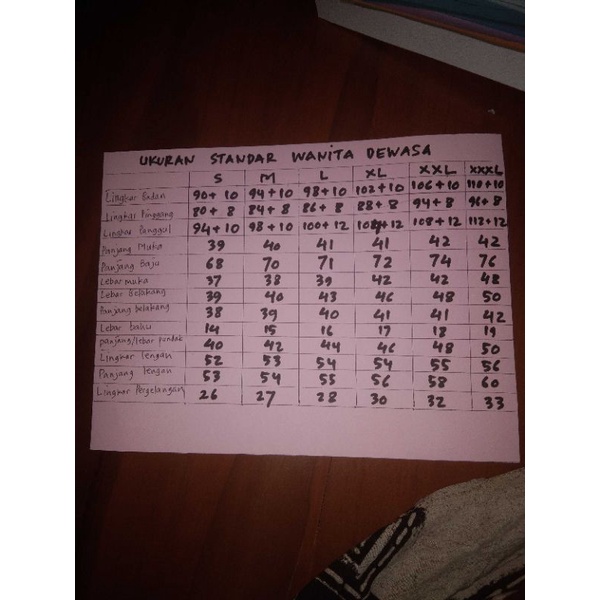 UKURAN STANDAR WANITA DEWASA
S M L XL XXL XXXL
Lingkar Badan 90+10 94+10 98+10 102+10 106+10 110+10
Lingkar Pinggang 80+8 84+8 86+8 88+8 94+8 96+8
Lingkar Panggul 94+10 98+10 100+12 +12 108+12 112+12
Panjang Muka 39 40 41 41 42 42
Panjang Baju 68 70 71 72 74 76
Lebar muka 37 38 39 42 42 48
Lebar Belakang 39 40 43 46 48 50
Panjang belakang 38 39 40 41 41 42
Lebar bahu 14 15 16 17 18 19
panjang/lebar pundak 40 42 44 46 48 50
Lingkar Lengan 52 53 54 54 55 56
Panjang Lengan 53 54 55 56 58 60
Lingkar Pergelangan 26 27 28 30 32 33